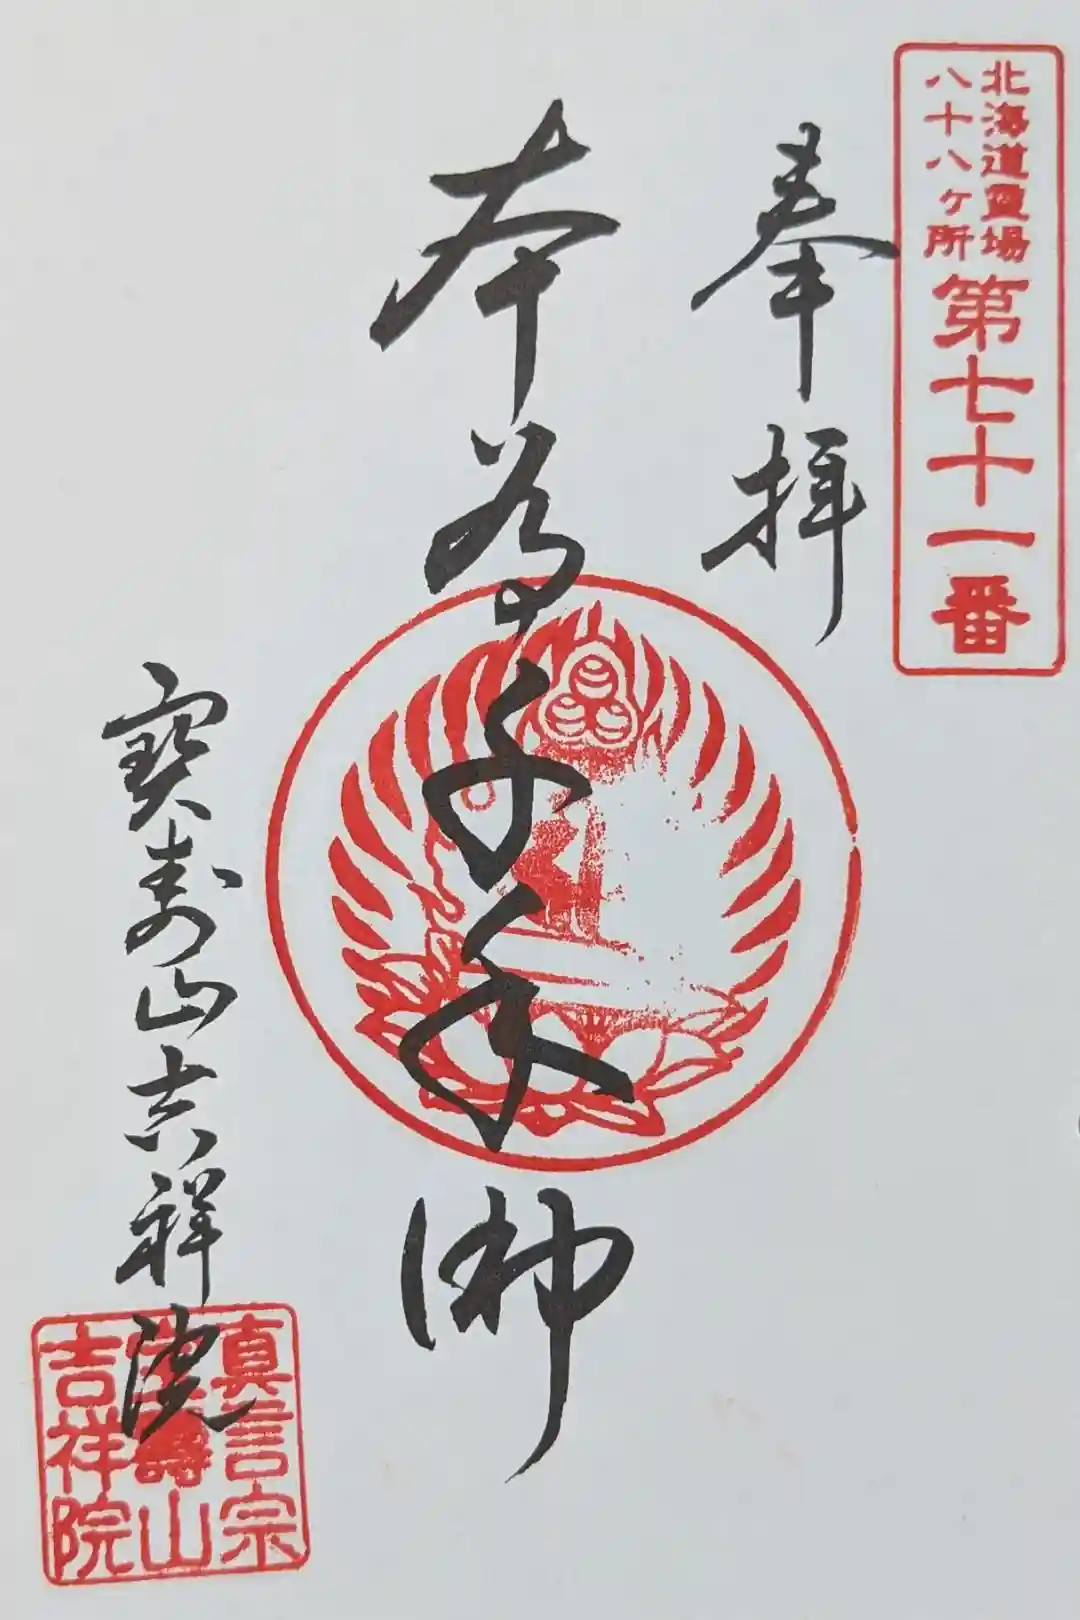 北海道霊場
八十八ヶ所
第七十一番
奉拝
本尊千手
寶壽山吉祥院
真言宗
壽山
吉祥院